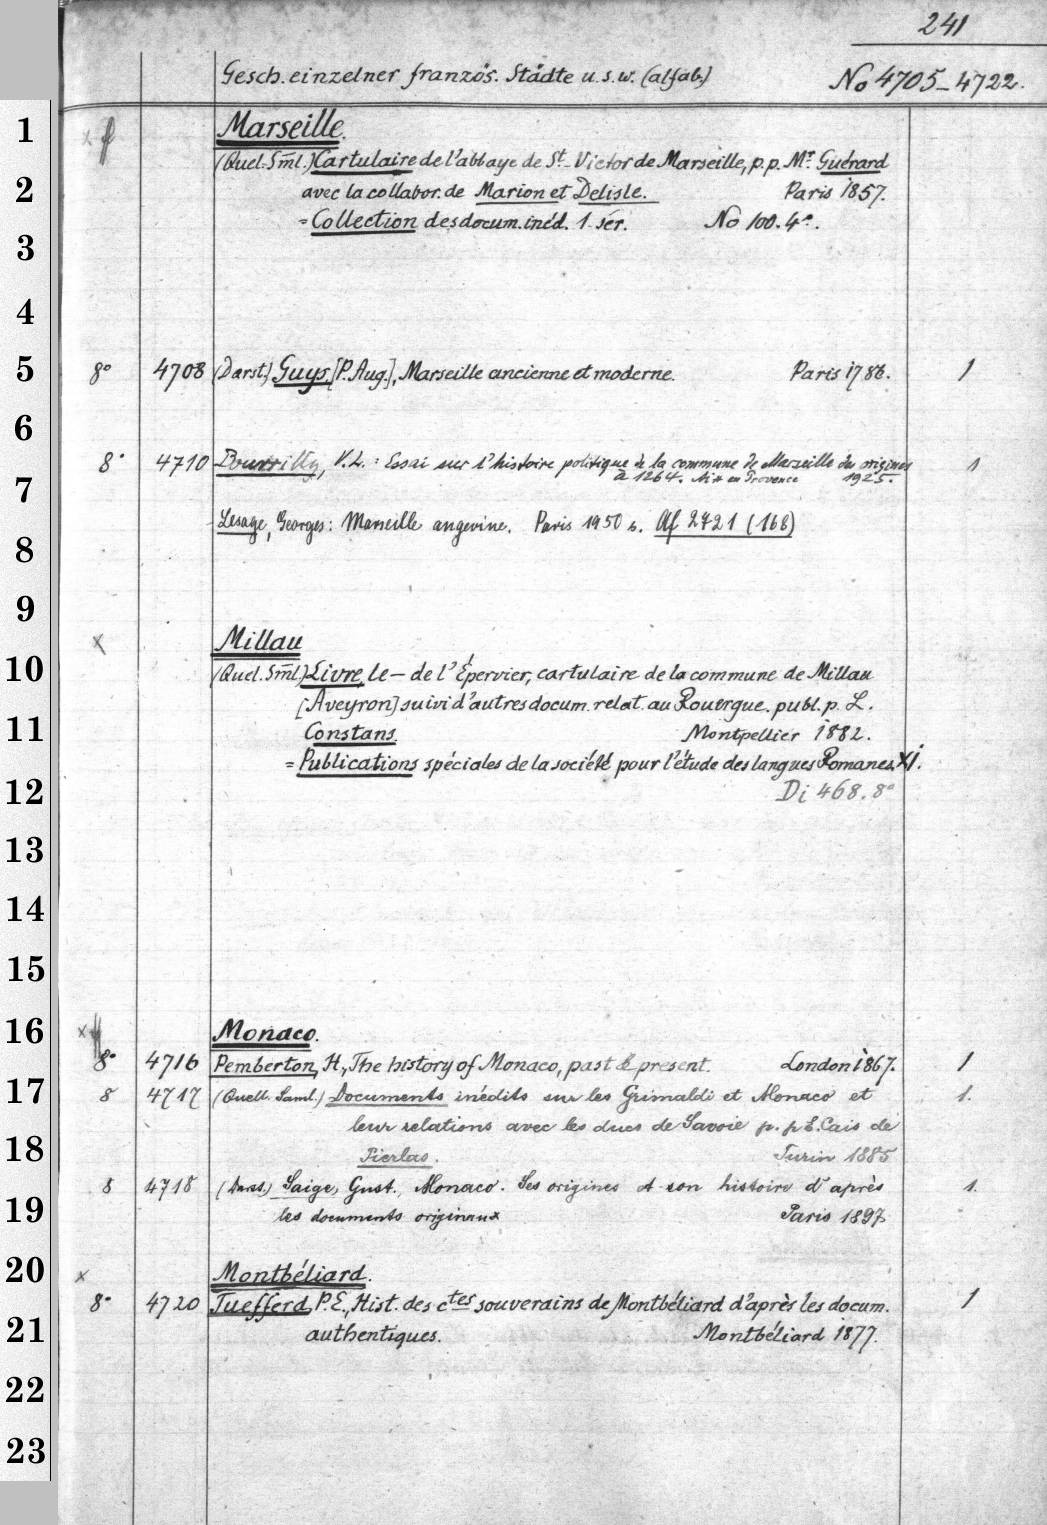 241
Gesch. einzelner französ. Städte u.s.w. (alfab.) No 4705-4722.
1
Marseille.
(Quel. Sml.) Cartulaire de l'abbaye de St-Victor de Marseille, p.p. Mr. Guérard
2
avec la collabor. de Marion et Delisle. Paris 1857.
= Collection des docum. inéd. 1. sér. No 100. 4°.
3
4
5
8° 4708 (Darst.) Guys, [P. Aug.], Marseille ancienne et moderne. Paris 1786. 1
6
8° 4710 Bourrilly, V.L. : Essai sur l'histoire politique de la commune de Marseille des origines 1
à 1264. Aix en Provence 1925.
7
Lesage, Georges: Marseille angevine. Paris 1950 s. Af 2721 (168)
8
9
x Millau
10
(Quel. Sml.) Livre, le — de l'Épervier, cartulaire de la commune de Millau
[Aveyron] suivi d'autres docum. relat. au Rouergue. publ. p. L.
11
Constans. Montpellier 1882.
= Publications spéciales de la société pour l'étude des langues Romanes. XI.
12
Di 468. 8°
13
14
15
16
x Monaco.
8° 4716 Pemberton, H., The history of Monaco, past & present. London 1867. 1
17
8 4717 (Quell. Saml.) Documents inédits sur les Grimaldi et Monaco et 1.
leur relations avec les ducs de Savoie p. p. E. Cais de
18
Pierlas. Turin 1885
8 4718 (Darst.) Saige, Gust., Monaco. Ses origines et son histoire d'après 1.
19
les documents originaux Paris 1897
20
x Montbéliard.
8° 4720 Tuefferd, P.E., Hist. des ctes souverains de Montbéliard d'après les docum. 1
21
authentiques. Montbéliard 1877.
22
23